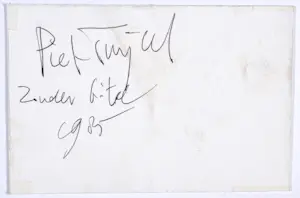 Piet Tuytel
Zonder titel
1985